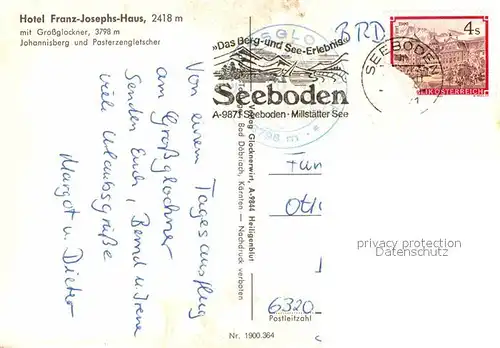 Hotel Franz-Josephs-Haus, 2418 m
mit Großglockner, 3798 m
Johannisberg und Pasterzengletscher
Von einem Tagesausflug
am Großglockner
Senden Euch, Bernd u. Irene
viele Urlaubsgrüße
Margot u. Dieter
»Das Berg- und See-Erlebnis«
Seeboden
A-9871 Seeboden · Millstätter See
3798 m
BRD
SEEBODEN
4s
REPUBLIK ÖSTERREICH
Verlag Glocknerwirt, A-9844 Heiligenblut
Bad Döbriach, Kärnten — Nachdruck verboten
6320
Postleitzahl
Nr. 1900.364
privacy protection
Datenschutz